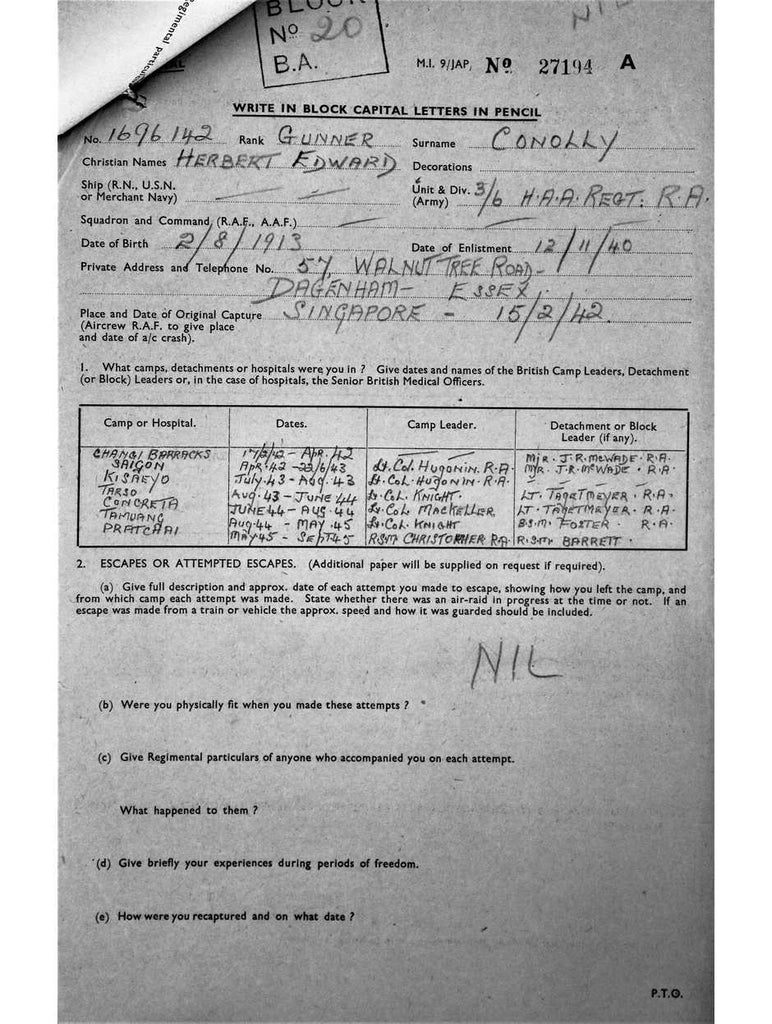 Regimental particu
BLOCK
No 20
B.A.
NIL
M.I. 9/JAP, No 27194 A
WRITE IN BLOCK CAPITAL LETTERS IN PENCIL
No. 1696142 Rank GUNNER Surname CONOLLY
Christian Names HERBERT EDWARD Decorations
Ship (R.N., U.S.N. or Merchant Navy) — — Unit & Div. (Army) 3/6 H.A.A. REGT. R.A.
Squadron and Command, (R.A.F., A.A.F.) — — —
Date of Birth 2/8/1913 Date of Enlistment 12/11/40
Private Address and Telephone No. 57, WALNUT TREE ROAD -
DAGENHAM - ESSEX.
Place and Date of Original Capture SINGAPORE - 15/2/42.
(Aircrew R.A.F. to give place
and date of a/c crash).
1. What camps, detachments or hospitals were you in ? Give dates and names of the British Camp Leaders, Detachment
(or Block) Leaders or, in the case of hospitals, the Senior British Medical Officers.
Camp or Hospital. Dates. Camp Leader. Detachment or Block Leader (if any).
CHANGI BARRACKS 17/2/42 - APR. 42 — — MJR. J.R. McWADE. R.A.
SAIGON APR. 42 - 22/6/43 Lt. Col. HUGONIN. R.A. MJR. J.R. McWADE. R.A.
KISAEYO JULY. 43 - AUG. 43 Lt. COL. HUGONIN. R.A. — — —
TARSO AUG. 43 - JUNE 44 Lt. COL. KNIGHT. LT. TAGETMEYER. R.A.
CONCRETA JUNE 44 - AUG. 44 Lt. COL MACKELLER. LT. TAGETMEYER. R.A.
TAMUANG AUG. 44 - MAY. 45 Lt. COL. KNIGHT B.S.M. FOSTER. R.A.
PRATCHAI MAY 45 - SEPT 45 RSM CHRISTOPHER R.A. R.S.M. BARRETT.
2. ESCAPES OR ATTEMPTED ESCAPES. (Additional paper will be supplied on request if required).
(a) Give full description and approx. date of each attempt you made to escape, showing how you left the camp, and
from which camp each attempt was made. State whether there was an air-raid in progress at the time or not. If an
escape was made from a train or vehicle the approx. speed and how it was guarded should be included.
NIL
(b) Were you physically fit when you made these attempts ?
(c) Give Regimental particulars of anyone who accompanied you on each attempt.
What happened to them ?
(d) Give briefly your experiences during periods of freedom.
(e) How were you recaptured and on what date ?
P.T.O.